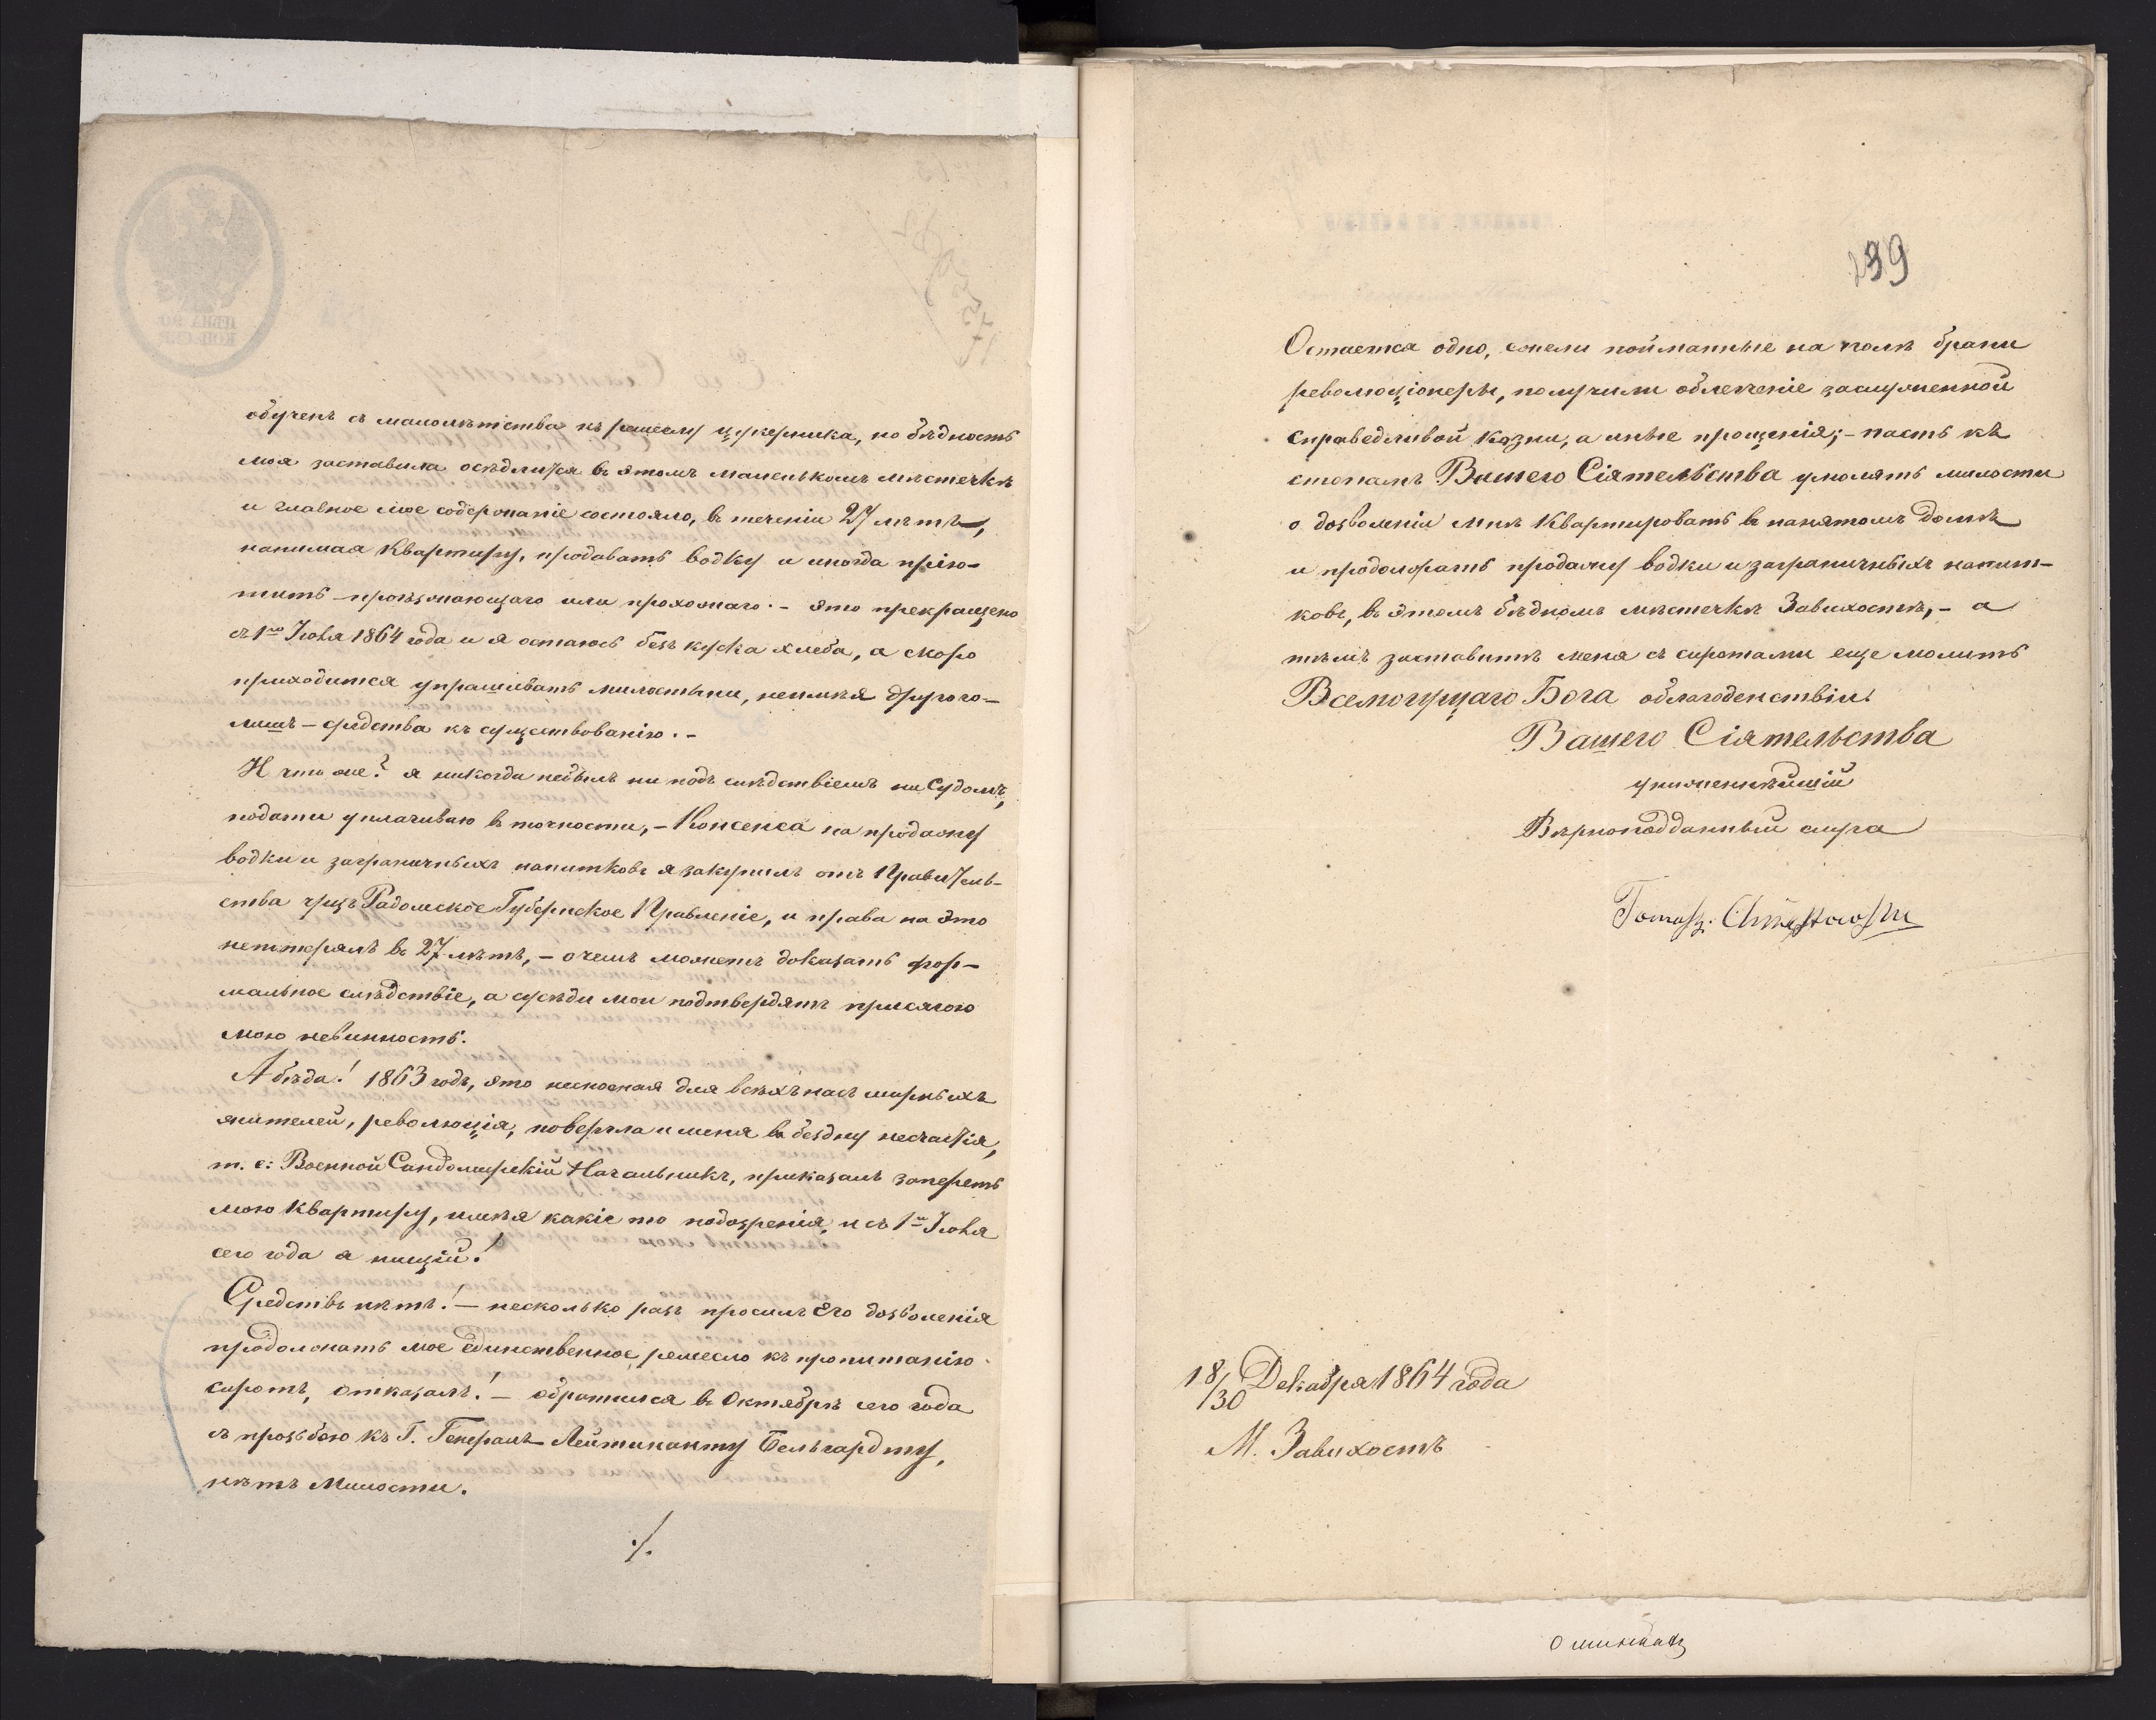 обученъ съ малолѣтства къ ремеслу цукерника, но бѣдность
моя заставила осѣдлиться въ этомъ маленькомъ мѣстечкѣ
и главное мое содержаніе состояло, въ теченіи 27 лѣтъ,
нанимая квартиру, продавать водку и иногда прію-
тить проѣзжающаго или прохожаго. - это прекращено
съ 1го Іюля 1864 года и я остаюсь безъ куска хлеба, а скоро
приходится упрашивать милостыни, неимѣя другого-
лишь - средства къ существованію. -
И что же? я никогда небылъ ни подъ слѣдствіемъ ни Судомъ,
подати уплачиваю въ точности, - Консенса на продажу
водки и заграничныхъ напитковъ я закупилъ отъ Правитель-
ства чрезъ Радомское Губернское Правленіе, и права на это
нетерялъ въ 27 лѣтъ, - о чемъ можетъ доказать фор-
мальное слѣдствіе, а сусѣди мои подтвердятъ присягою
мою невинность.
А бѣда! 1863 годъ, это несносная для всѣхъ насъ мирныхъ
жителей, революція, повергла и меня въ бездну несчастія,
т. е: Военной Сандомирскій Начальникъ, приказалъ запереть
мою квартиру, имѣя какіе то подозренія, и съ 1го Іюля
сего года я нищій!
Средствъ нѣтъ! - несколько разъ просилъ Его дозволенія
продолжать мое единственное ремесло къ пропитанію
сиротъ, отказалъ! - обратился въ Октябрѣ сего года
съ прозьбою къ Г. Генералъ-Лейтинанту Бельгардту,
нѣтъ Милости.
./.
239
Остается одно, ежели пойманные на полѣ брани
революціонеры, получили облегченіе заслуженной
справедливой казни, а иные прощенія; - пасть къ
стопамъ Вашего Сіятельства умолять милости
о дозволеніи мнѣ квартировать въ нанятомъ домѣ
и продолжать продажу водки и заграничныхъ напит-
ковъ, въ этомъ бѣдномъ мѣстечкѣ Завихостѣ, - а
тѣмъ заставитъ меня съ сиротами еще молить
Всемогущаго Бога облагоденствіи
Вашего Сіятельства
униженнѣйшій
Вѣрноподданный слуга
Tomasz
18/30 Декабря 1864 года
М. Завихостъ